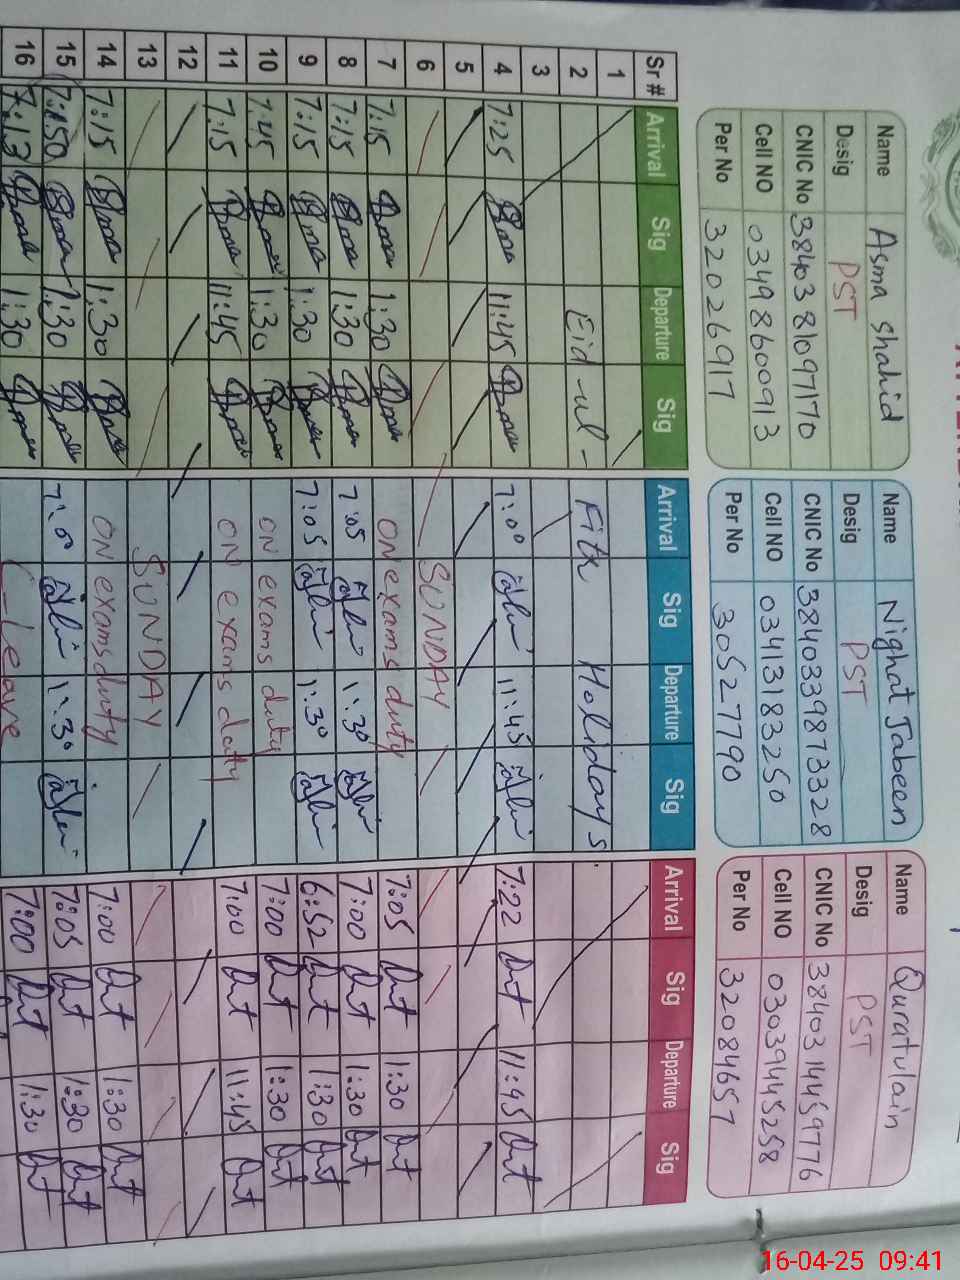 Name Asma Shahid
Desig PST
CNIC No 38403 8109717 0
Cell NO 03498600913
Per No 32026917
Name Nighat Jabeen
Desig PST
CNIC No 3840339873328
Cell NO 03413183250
Per No 30527790
Name Quratulain
Desig PST
CNIC No 38403 1445977 6
Cell NO 03039445258
Per No 32084657
Sr # Arrival Sig Departure Sig Arrival Sig Departure Sig Arrival Sig Departure Sig
1
2 Eid-ul-Fitr Holidays
3
4 7:25 11:45 7:00 11:45 7:22 11:45
5
6 SUNDAY
7 7:15 1:30 ON exams duty 7:05 1:30
8 7:15 1:30 7:05 1:30 7:00 1:30
9 7:15 1:30 7:05 1:30 6:52 1:30
10 1:30 ON exams duty 7:00 1:30
11 7:15 11:45 ON exams duty 7:00 11:45
12
13 SUNDAY
14 7:15 1:30 ON exams duty 7:00 1:30
15 1:30 7:00 1:30 7:05 1:30
16 7:13 1:30 C-leave 7:00 1:30
16-04-25 09:41